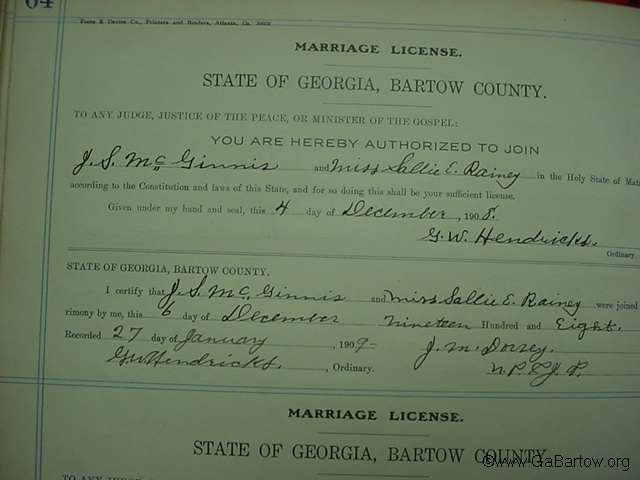 64
Foote & Davies Co., Printers and Binders, Atlanta, Ga.
MARRIAGE LICENSE.
STATE OF GEORGIA, BARTOW COUNTY.
TO ANY JUDGE, JUSTICE OF THE PEACE, OR MINISTER OF THE GOSPEL:
YOU ARE HEREBY AUTHORIZED TO JOIN
J. S. McGinnis and Miss Sallie E. Rainey in the Holy State of Mat
according to the Constitution and laws of this State, and for so doing this shall be your sufficient license.
Given under my hand and seal, this 4 day of December, 1908.
G. W. Hendricks.
Ordinary.
STATE OF GEORGIA, BARTOW COUNTY.
I certify that J. S. McGinnis and Miss Sallie E. Rainey were joined
rimony by me, this 6 day of December nineteen Hundred and Eight.
Recorded 27 day of January, 1909 J. M. Dorsey.
G. W. Hendricks., Ordinary. N. P. & J. P.
MARRIAGE LICENSE.
STATE OF GEORGIA, BARTOW COUNTY.
©www.GaBartow.org